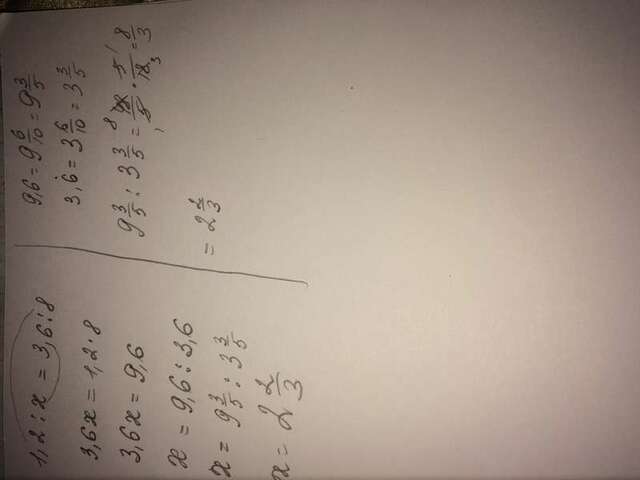 1,2 : x = 3,6 : 8
3,6x = 1,2 · 8
3,6x = 9,6
x = 9,6 : 3,6
x = 9 3/5 : 3 3/5
x = 2 2/3
9,6 = 9 6/10 = 9 3/5
3,6 = 3 6/10 = 3 3/5
9 3/5 : 3 3/5 = 48/5 · 5/18 = 8/3
= 2 2/3